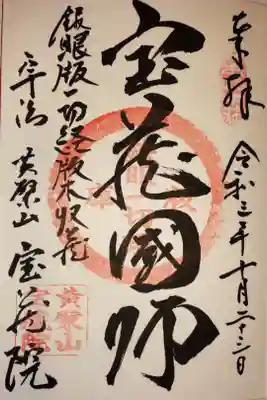 奉拝
令和三年十月二十二日
宝蔵國師
鉄眼版一切経版木収蔵
宇治 黄檗山 宝蔵院
黄檗山
宝蔵院